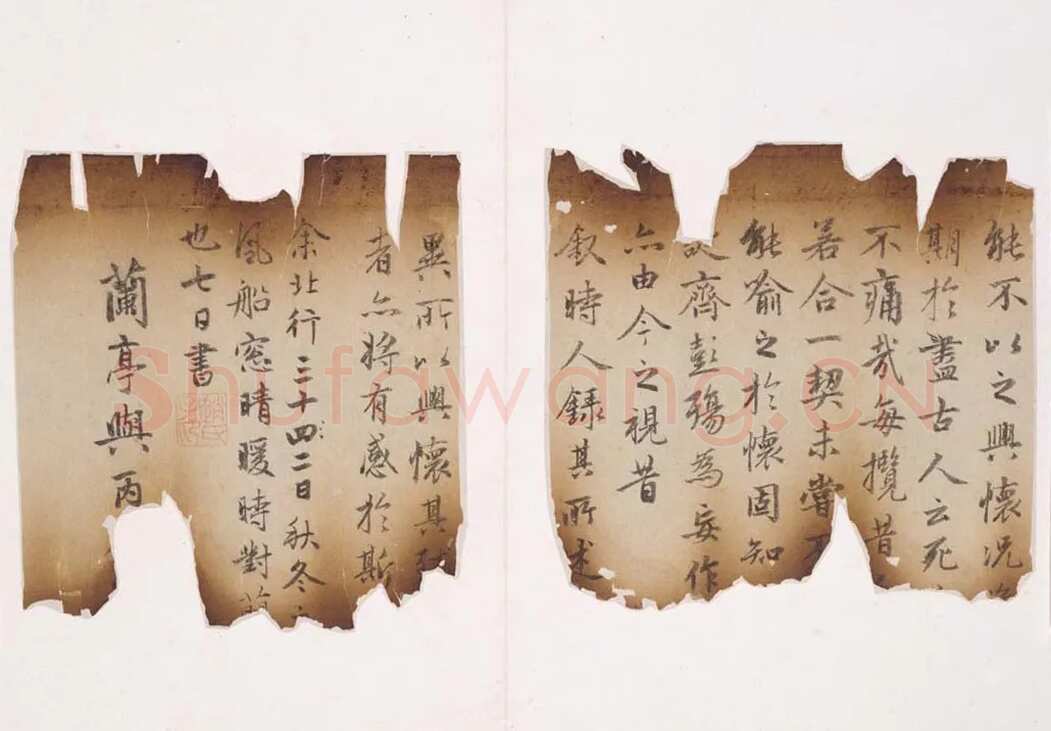 能不以之興懷況
期於盡古人云死
不痛哉每攬昔
若合一契未嘗不
能喻之於懷固知
齊彭殤為妄作
亦由今之視昔
敘時人錄其所述
異所以興懷其致
者亦將有感於斯
余北行三十四二日秋冬之
風船窓晴暖時對蘭
也七日書
蘭亭與丙
Shufawang.cn